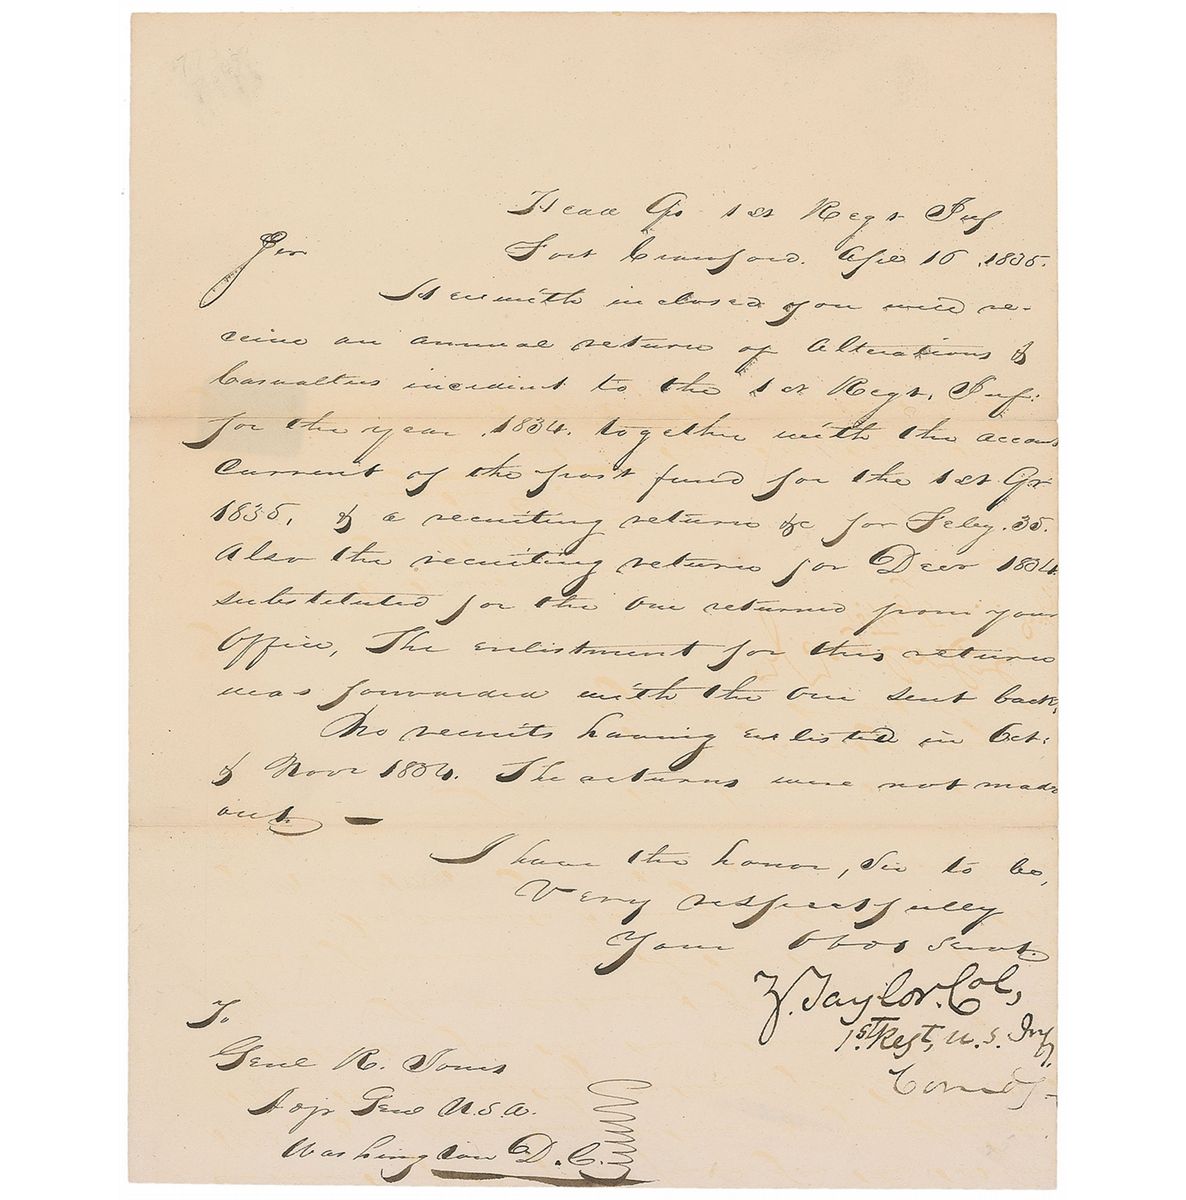 Head Qrs 1st Regt Inf
Fort Crawford. Apl 16, 1835.
Sir
Herewith inclosed you will re-
ceive an annual return of Alterations &
Casualties incident to the 1st Regt. Inf:
for the year 1834. together with the account
Current of the post fund for the 1st Qr
1835, & a recruiting return &c for Feby. 35.
Also the recruiting return for Decr 1834
substituted for the one returned from your
Office, The enlistment for this return
was forwarded with the one sent back,
No recruits having enlisted in Oct:
& Novr 1834. The returns were not made
out. —
I have the honor, Sir to be,
Very respectfully
Your Obdt Servt.
Z. Taylor. Col,
1st Regt, U. S. Inf,
Comdg
To
Genl R. Jones
Adjt Genl U.S.A.
Washington D.C.